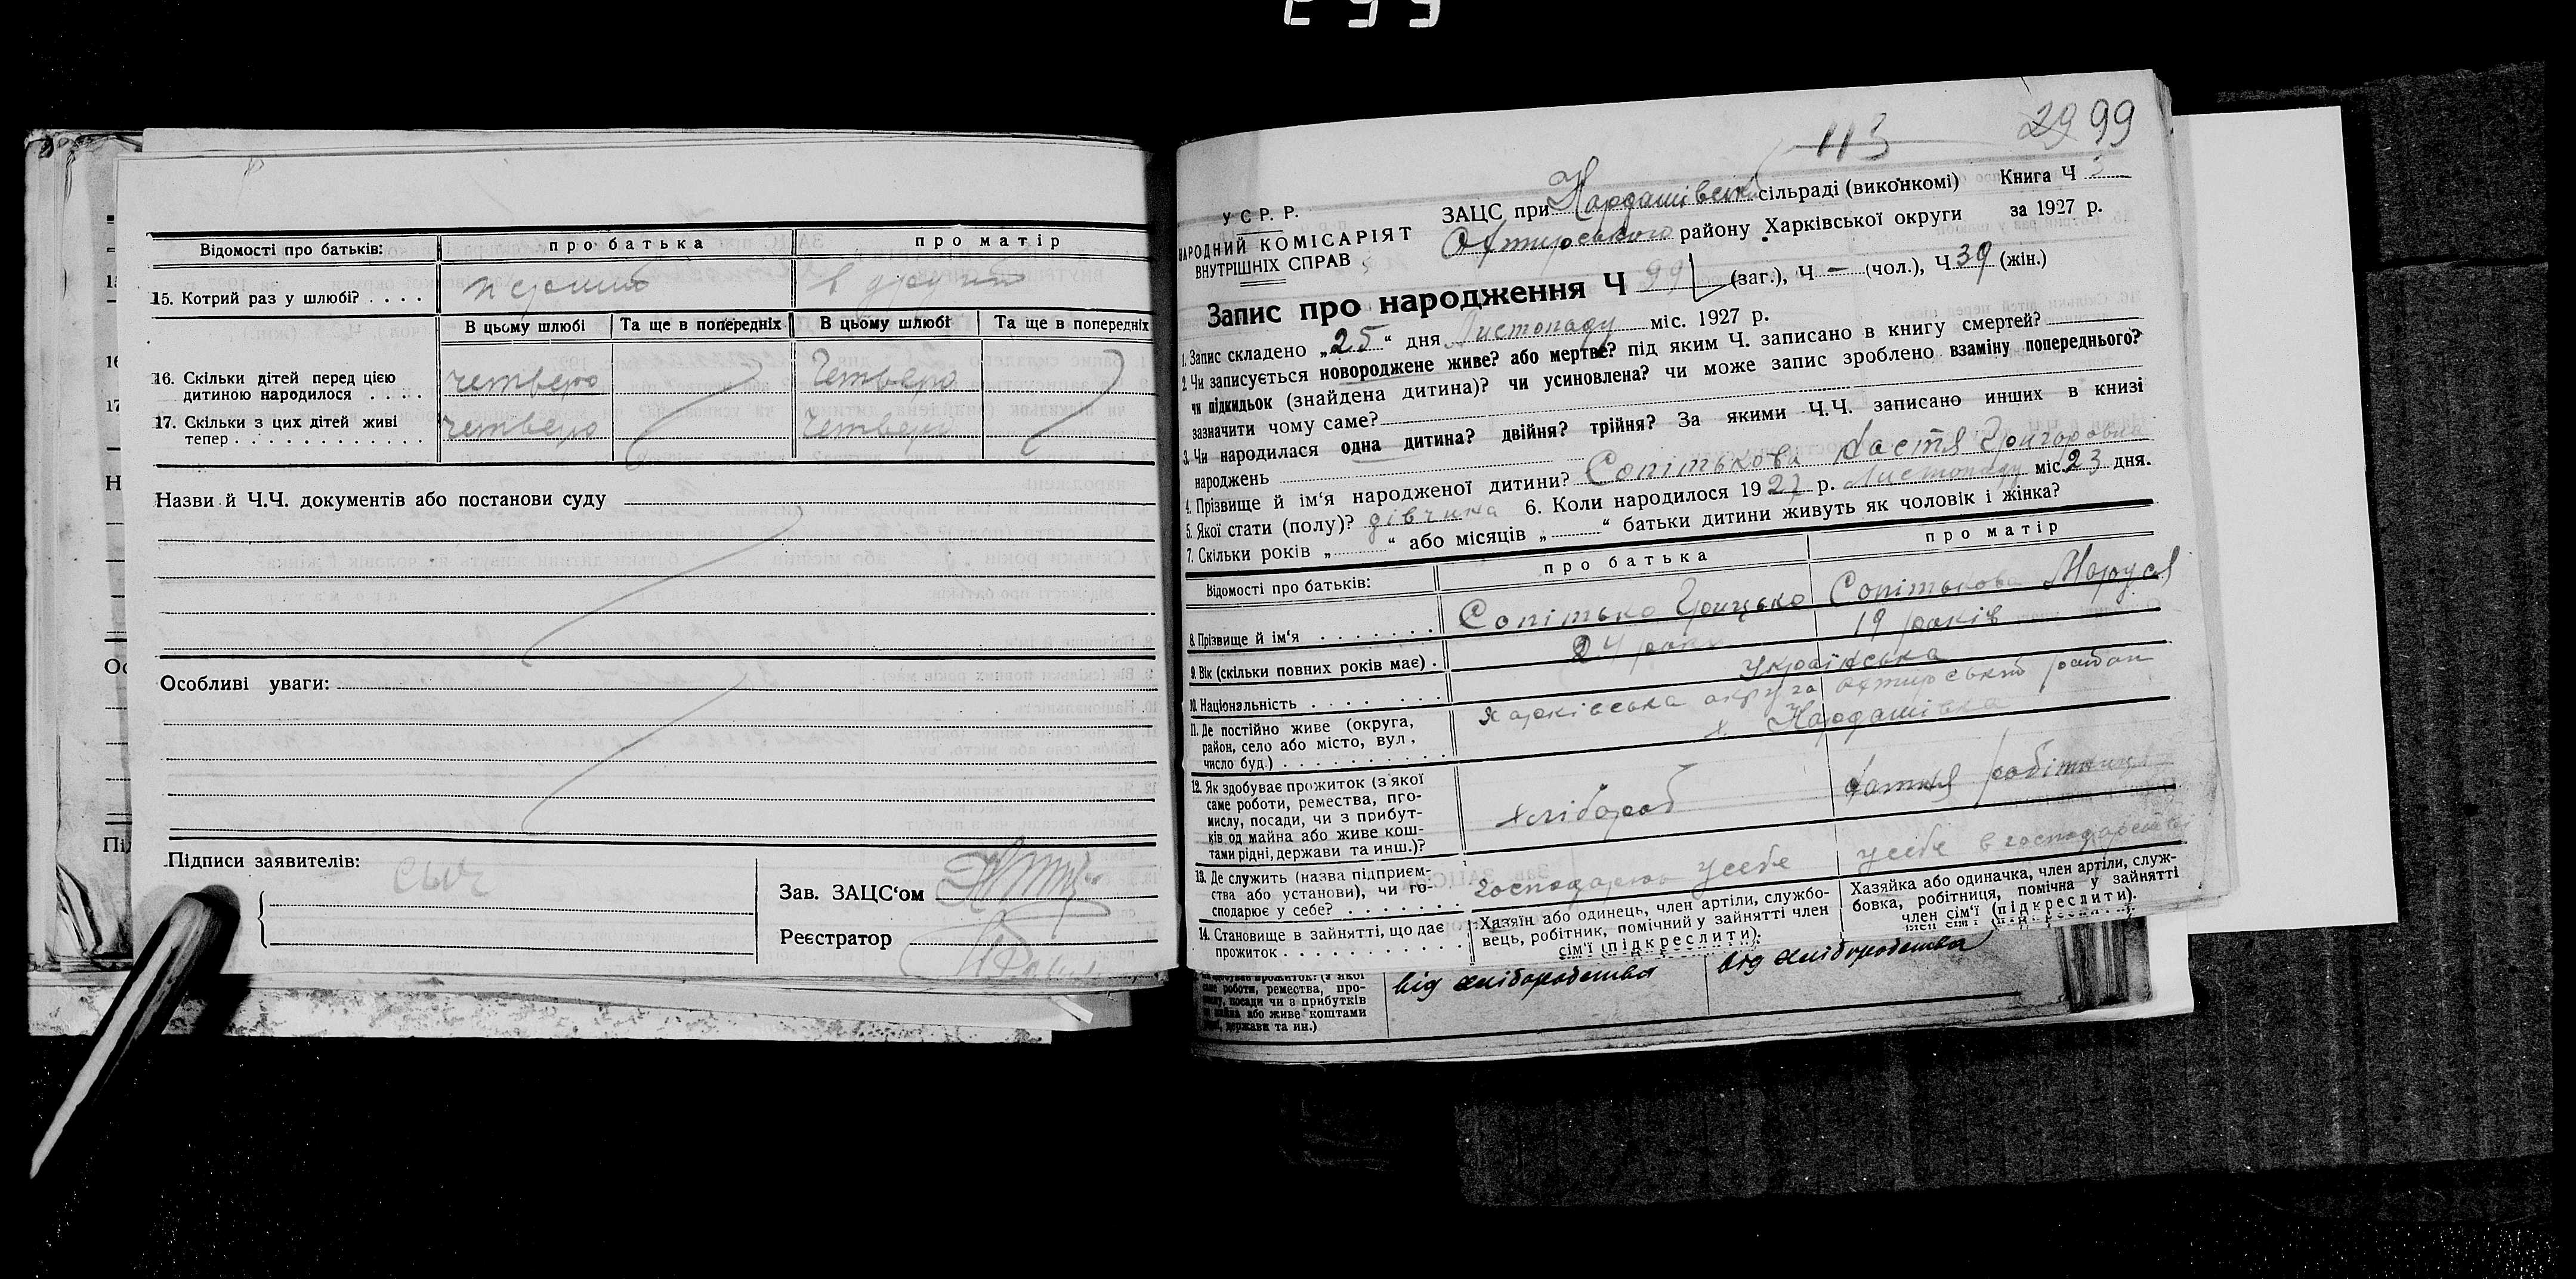 Відомості про батьків: про батька про матір
15. Котрий раз у шлюбі? . . . . перший в другий
В цьому шлюбі Та ще в попередніх В цьому шлюбі Та ще в попередніх
16. Скільки дітей перед цією
дитиною народилося . . . . четверо четверо
17. Скільки з цих дітей живі
тепер . . . . . . . . . . . . четверо четверо
Назви й Ч.Ч. документів або постанови суду
Особливі уваги:
Підписи заявителів:
Зав. ЗАЦС‘ом
Реєстратор
113
29 99
У С Р. Р.
НАРОДНИЙ КОМІСАРІЯТ
ВНУТРІШНІХ СПРАВ
ЗАЦС при Кардашівській сільраді (виконкомі) Книга Ч 3
Охтирського району Харківської округи за 1927 р.
Запис про народження Ч 99 (заг.), Ч — (чол.), Ч 39 (жін.)
1. Запис складено „25“ дня Листопаду міс. 1927 р.
2. Чи записується новороджене живе? або мертве? під яким Ч. записано в книгу смертей?
чи підкидьок (знайдена дитина)? чи усиновлена? чи може запис зроблено взаміну попереднього?
зазначити чому саме?
3. Чи народилася одна дитина? двійня? трійня? За якими Ч.Ч. записано инших в книзі
народжень
4. Прізвище й ім‘я народженої дитини? Сопітькова Настя Григоровна
5. Якої стати (полу)? дівчина 6. Коли народилося 1927 р. Листопаду міс. 23 дня.
7. Скільки років „ “ або місяців „ “ батьки дитини живуть як чоловік і жінка?
Відомості про батьків: про батька про матір
8. Прізвище й ім‘я . . . . . . . Сопітько Грицько Сопітькова Маруся
9. Вік (скільки повних років має) . 24 роки 19 років
10. Національність . . . . . . . Українська
11. Де постійно живе (округа, Харківська округа Охтирський район
район, село або місто, вул., х. Кардашівка
число буд.) . . . . . . . . . .
12. Як здобуває прожиток (з якої
саме роботи, ремества, про-
мислу, посади, чи з прибут-
ків од майна або живе кош-
тами рідні, держави та инш.)? хлібороб хатня робітниця
13. Де служить (назва підприєм-
ства або установи), чи го-
сподарює у себе? . . . . . . . господарює усебе усебе в господарстві
14. Становище в зайнятті, що дає
прожиток . . . . . . . . . .
Хазяїн або одинець, член артіли, службо-
вець, робітник, помічний у зайнятті член
сім‘ї (підкреслити).
Хазяйка або одиначка, член артіли, служ-
бовка, робітниця, помічна у зайнятті
член сім‘ї (підкреслити).
роботи, ремества, про-
посади чи з прибутків
або живе коштами
держави та ин.)
від хліборобства від хліборобства